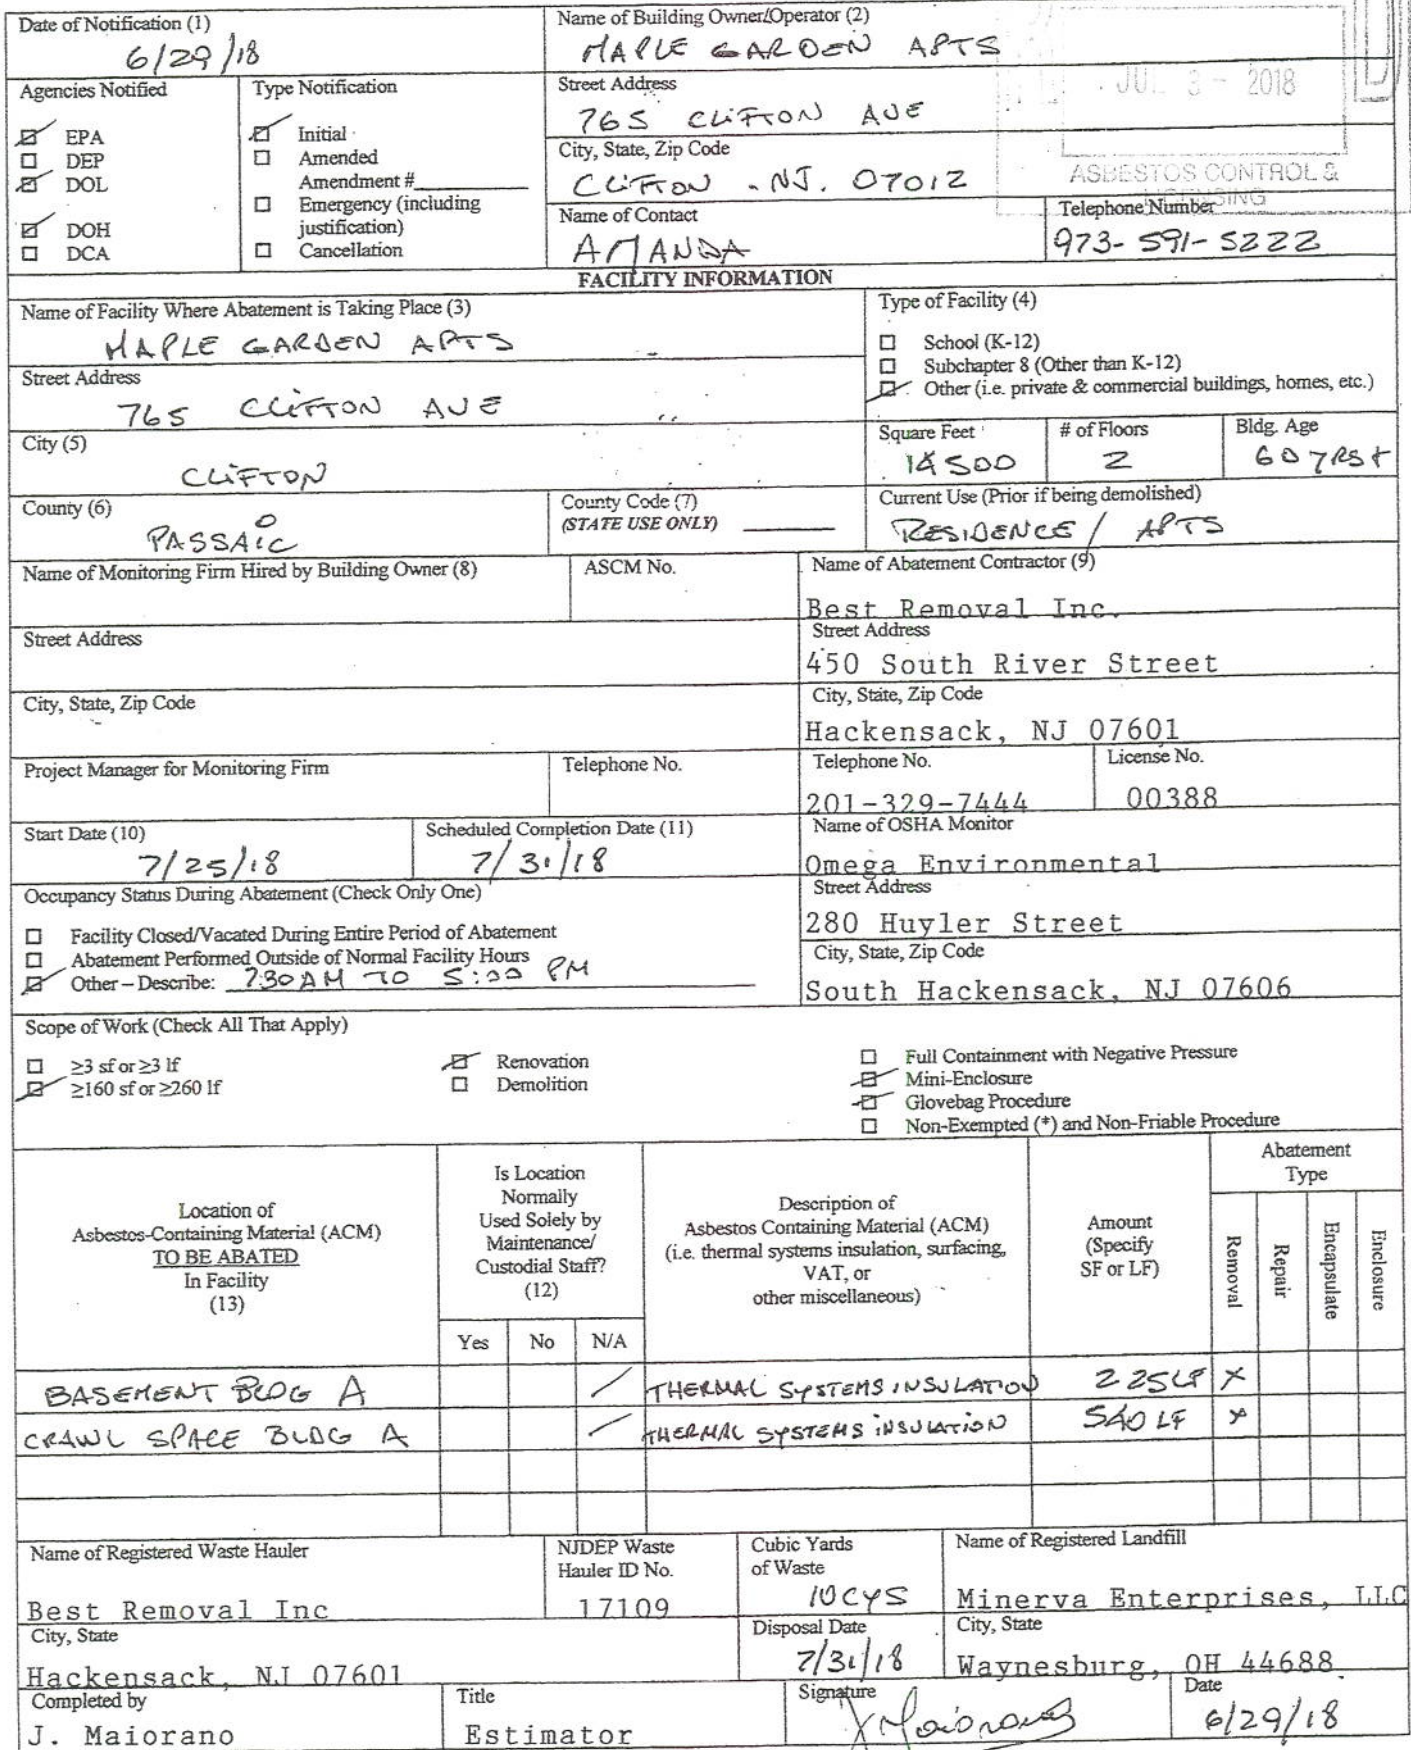 Date of Notification (1)
6/29/18
Name of Building Owner/Operator (2)
MAPLE GARDEN APTS
Agencies Notified
EPA
DEP
DOL
DOH
DCA
Type Notification
Initial
Amended
Amendment #
Emergency (including
justification)
Cancellation
Street Address
765 CLIFTON AVE
JUL 3 - 2018
City, State, Zip Code
CLIFTON - NJ. 07012
ASBESTOS CONTROL &
LICENSING
Name of Contact
AMANDA
Telephone Number
973-591-5222
FACILITY INFORMATION
Name of Facility Where Abatement is Taking Place (3)
MAPLE GARDEN APTS
Type of Facility (4)
School (K-12)
Subchapter 8 (Other than K-12)
Other (i.e. private & commercial buildings, homes, etc.)
Street Address
765 CLIFTON AVE
City (5)
CLIFTON
Square Feet
14500
# of Floors
2
Bldg. Age
60 YRS+
County (6)
PASSAIC
County Code (7)
(STATE USE ONLY)
Current Use (Prior if being demolished)
RESIDENCE / APTS
Name of Monitoring Firm Hired by Building Owner (8)
ASCM No.
Name of Abatement Contractor (9)
Best Removal Inc.
Street Address
Street Address
450 South River Street
City, State, Zip Code
City, State, Zip Code
Hackensack, NJ 07601
Project Manager for Monitoring Firm
Telephone No.
Telephone No.
201-329-7444
License No.
00388
Start Date (10)
7/25/18
Scheduled Completion Date (11)
7/31/18
Name of OSHA Monitor
Omega Environmental
Occupancy Status During Abatement (Check Only One)
Facility Closed/Vacated During Entire Period of Abatement
Abatement Performed Outside of Normal Facility Hours
Other – Describe: 7:30 AM TO 5:00 PM
Street Address
280 Huyler Street
City, State, Zip Code
South Hackensack, NJ 07606
Scope of Work (Check All That Apply)
≥3 sf or ≥3 lf
≥160 sf or ≥260 lf
Renovation
Demolition
Full Containment with Negative Pressure
Mini-Enclosure
Glovebag Procedure
Non-Exempted (*) and Non-Friable Procedure
Location of
Asbestos-Containing Material (ACM)
TO BE ABATED
In Facility
(13)
Is Location
Normally
Used Solely by
Maintenance/
Custodial Staff?
(12)
Yes No N/A
Description of
Asbestos Containing Material (ACM)
(i.e. thermal systems insulation, surfacing,
VAT, or
other miscellaneous)
Amount
(Specify
SF or LF)
Abatement
Type
Removal
Repair
Encapsulate
Enclosure
BASEMENT BLDG A / THERMAL SYSTEMS INSULATION 225 LF X
CRAWL SPACE BLDG A / THERMAL SYSTEMS INSULATION 540 LF X
Name of Registered Waste Hauler
Best Removal Inc
NJDEP Waste
Hauler ID No.
17109
Cubic Yards
of Waste
10 CYS
Name of Registered Landfill
Minerva Enterprises, LLC
City, State
Hackensack, NJ 07601
Disposal Date
7/31/18
City, State
Waynesburg, OH 44688
Completed by
J. Maiorano
Title
Estimator
Signature
X Maiorano
Date
6/29/18